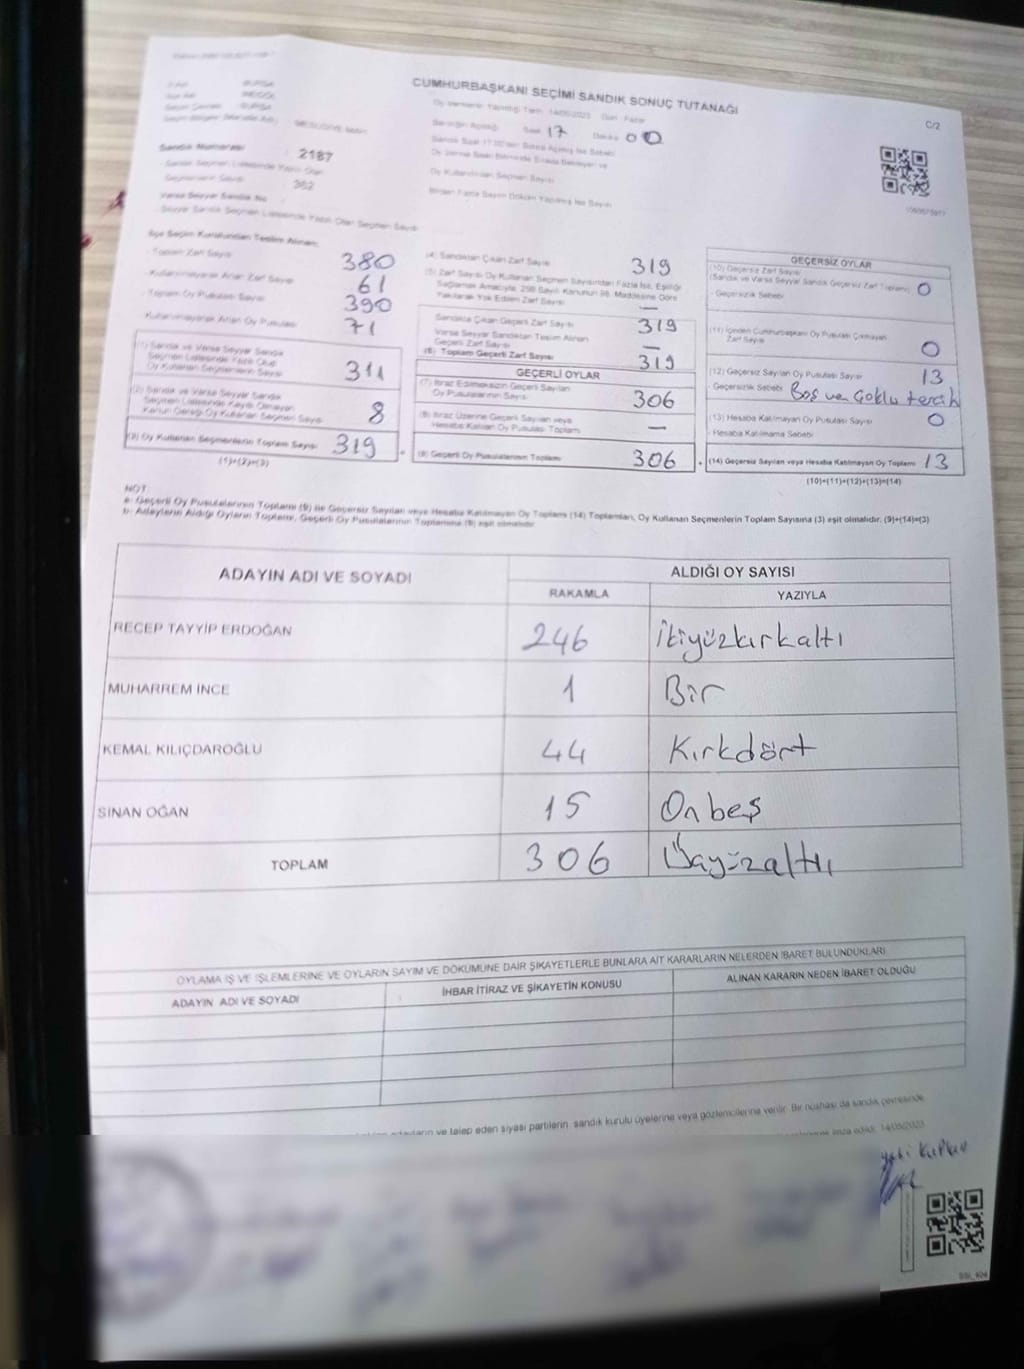 CUMHURBAŞKANI SEÇİMİ SANDIK SONUÇ TUTANAĞI
C/2
BURSA
İNEGÖL
BURSA
Oy Vermenin Yapıldığı Tarih 14/05/2023 Gün Pazar
Sandığın Açıldığı Saat 17 Dakika 00
Sandık Numarası 2187
382
Oy Kullandırılan Seçmen Sayısı
Birden Fazla Sayım Döküm Yapılmış İse Sayısı
Varsa Seyyar Sandık No
Seyyar Sandık Seçmen Listesinde Yazılı Olan Seçmen Sayısı
İlçe Seçim Kurulundan Teslim Alınan;
Toplam Zarf Sayısı 380
Kullanılmayarak Artan Zarf Sayısı 61
Toplam Oy Pusulası Sayısı 390
Kullanılmayarak Artan Oy Pusulası 71
(1) Sandık ve Varsa Seyyar Sandık
Seçmen Listesinde Yazılı Olup
Oy Kullanan Seçmenlerin Sayısı 311
(2) Sandık ve Varsa Seyyar Sandık
Seçmen Listesinde Kayıtlı Olmayan
Kanun Gereği Oy Kullanan Seçmen Sayısı 8
(3) Oy Kullanan Seçmenlerin Toplam Sayısı 319
(1)+(2)=(3)
(4) Sandıktan Çıkan Zarf Sayısı 319
(5) Zarf Sayısı Oy Kullanan Seçmen Sayısından Fazla İse, Eşitliği
Sağlamak Amacıyla, 298 Sayılı Kanunun 98. Maddesine Göre
Yakılarak Yok Edilen Zarf Sayısı —
Sandıkta Çıkan Geçerli Zarf Sayısı 319
Varsa Seyyar Sandıktan Teslim Alınan
Geçerli Zarf Sayısı —
(6) Toplam Geçerli Zarf Sayısı 319
GEÇERLİ OYLAR
(7) İtiraz Edilmeksizin Geçerli Sayılan
Oy Pusulalarının Sayısı 306
(8) İtiraz Üzerine Geçerli Sayılan veya
Hesaba Katılan Oy Pusulası Toplamı —
(9) Geçerli Oy Pusulalarının Toplamı 306
GEÇERSİZ OYLAR
(10) Geçersiz Zarf Sayısı
(Sandık ve Varsa Seyyar Sandık Geçersiz Zarf Toplamı) 0
Geçersizlik Sebebi
(11) İçinden Cumhurbaşkanı Oy Pusulası Çıkmayan
Zarf Sayısı 0
(12) Geçersiz Sayılan Oy Pusulası Sayısı 13
Geçersizlik Sebebi Boş ve Çoklu tercih
(13) Hesaba Katılmayan Oy Pusulası Sayısı 0
Hesaba Katılmama Sebebi
(14) Geçersiz Sayılan veya Hesaba Katılmayan Oy Toplamı 13
(10)+(11)+(12)+(13)=(14)
NOT:
a- Geçerli Oy Pusulalarının Toplamı (9) ile Geçersiz Sayılan veya Hesaba Katılmayan Oy Toplamı (14) Toplamları, Oy Kullanan Seçmenlerin Toplam Sayısına (3) eşit olmalıdır. (9)+(14)=(3)
b- Adayların Aldığı Oyların Toplamı, Geçerli Oy Pusulalarının Toplamına (9) eşit olmalıdır.
ADAYIN ADI VE SOYADI
ALDIĞI OY SAYISI
RAKAMLA YAZIYLA
RECEP TAYYİP ERDOĞAN 246 İkiyüzkırkaltı
MUHARREM İNCE 1 Bir
KEMAL KILIÇDAROĞLU 44 Kırkdört
SİNAN OĞAN 15 Onbeş
TOPLAM 306 Üçyüzaltı
OYLAMA İŞ VE İŞLEMLERİNE VE OYLARIN SAYIM VE DÖKÜMÜNE DAİR ŞİKAYETLERLE BUNLARA AİT KARARLARIN NELERDEN İBARET BULUNDUKLARI
ADAYIN ADI VE SOYADI İHBAR İTİRAZ VE ŞİKAYETİN KONUSU ALINAN KARARIN NEDEN İBARET OLDUĞU
adayların ve talep eden siyasi partilerin sandık kurulu üyelerine veya gözlemcilerine verilir. Bir nüshası da sandık çevresinde
imza edildi. 14/05/2023